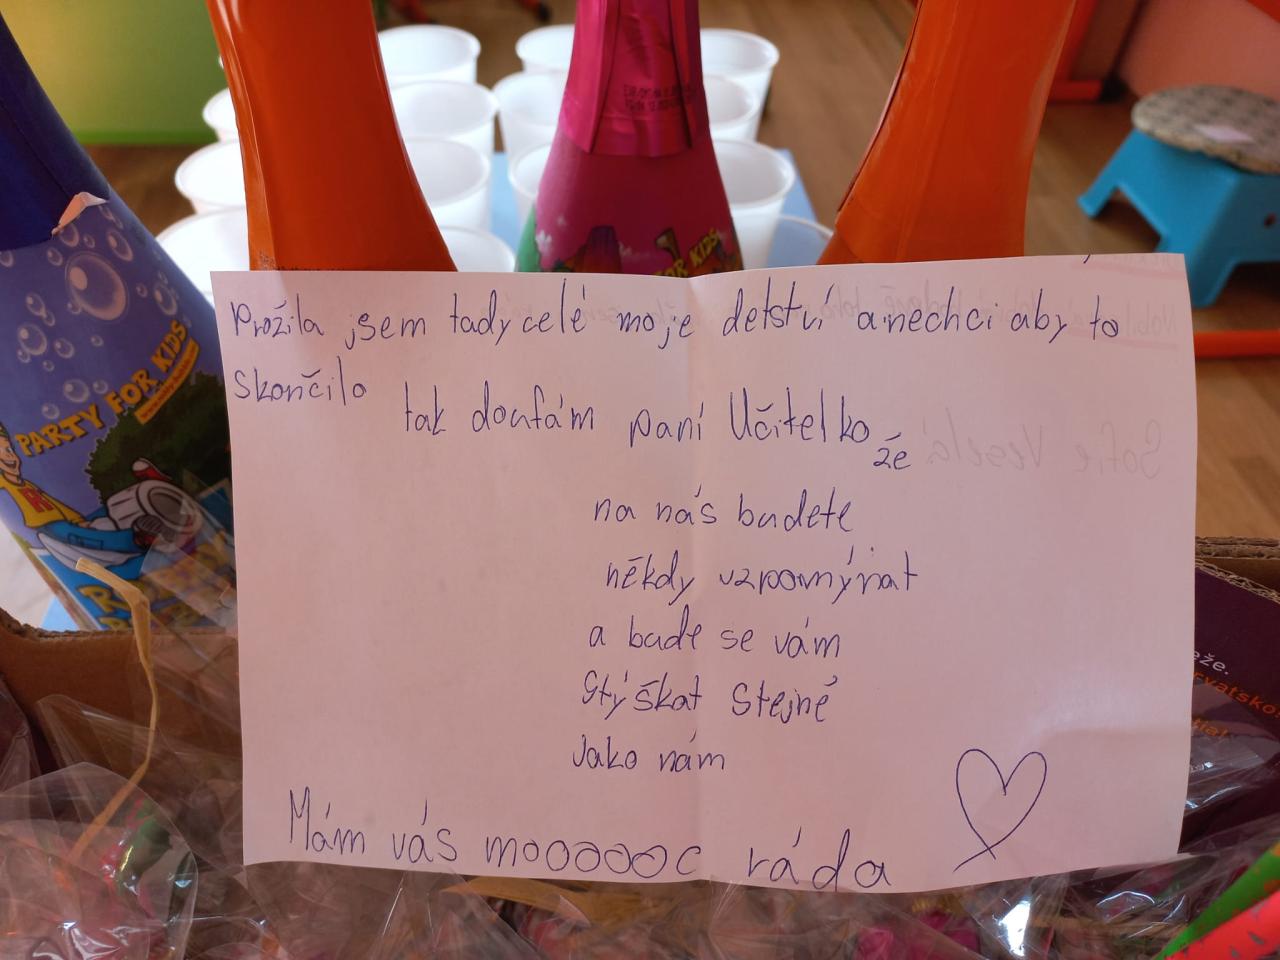 Prožila jsem tady celé moje detství a nechci aby to
skončilo
tak doufám paní Učitelko
že
na nás budete
někdy vzpomýnat
a bude se vám
Stýškat Stejně
Jako nám
Mám vás moooooc ráda
PARTY FOR KIDS
FOR KIDS
Sofie Veselá
eže.